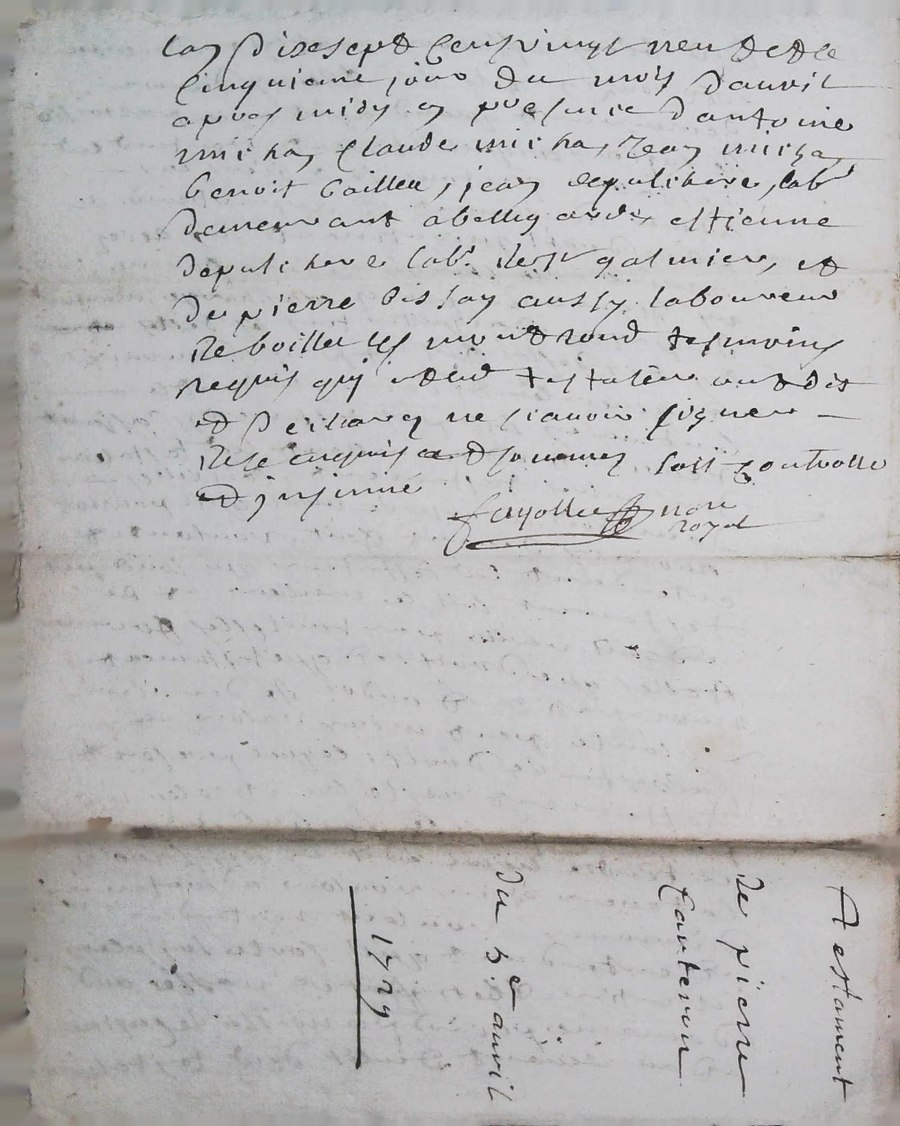 lan dixsept Cens vingt neuf et le
Cinquieme jour du mois dauvil
apres midy en presence dantoine
micha, Claude micha, Jean micha
benoit baillea, jean depulchere, labr
demeurant a bellegarde estienne
depulchere labr. de st galmier, et
de pierre bissay aussy laboureur
de boillieu les montrond tesmoins
requis qui et led testateur ont dit
et declaré ne scavoir signer
de ce enquis et sommés soit controllé
et insinué
fayolle nore
royal
Testament
de pierre
Carteron
du 5e auvril
1729